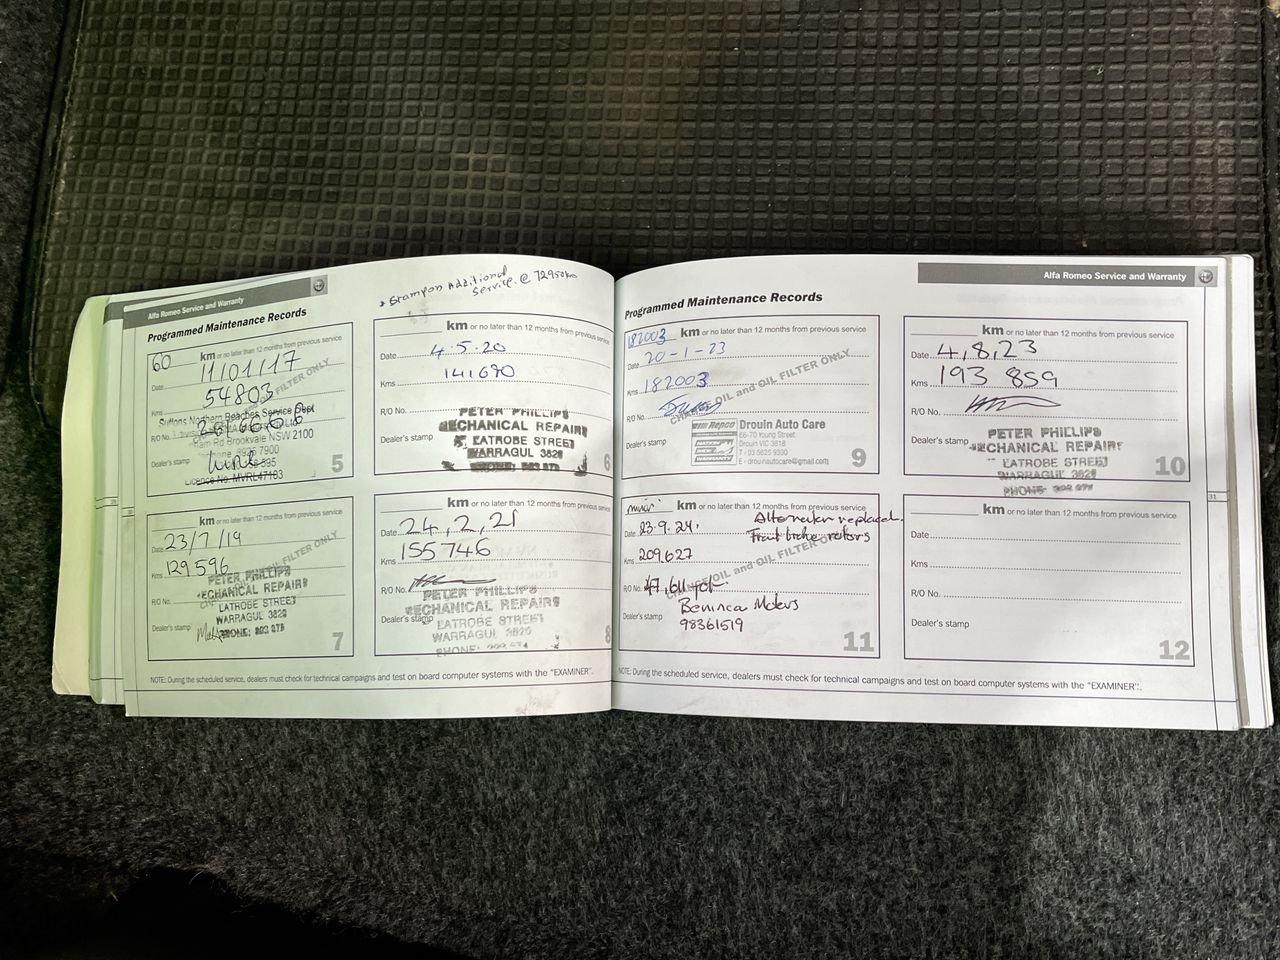 Alfa Romeo Service and Warranty
Programmed Maintenance Records
* Stamp on Additional
Service @ 72950km
60 km or no later than 12 months from previous service
Date 11/01/17
Kms 54803
CHANGE OIL and OIL FILTER ONLY
Suttons Northern Beaches Service Dept
R/O No.
Rd Brookvale NSW 2100
7900
Dealer's stamp
Licence No. MVRL47183
5
km or no later than 12 months from previous service
Date 4.5.20
Kms 141690
R/O No.
PETER PHILLIPS
MECHANICAL REPAIRS
Dealer's stamp
LATROBE STREET
WARRAGUL 3820
PHONE:
6
km or no later than 12 months from previous service
Date 23/7/19
Kms 129596
CHANGE OIL and OIL FILTER ONLY
PETER PHILLIPS
MECHANICAL REPAIRS
R/O No.
LATROBE STREET
WARRAGUL 3820
Dealer's stamp
PHONE:
7
km or no later than 12 months from previous service
Date 24,2,21
Kms 155746
R/O No.
PETER PHILLIPS
MECHANICAL REPAIRS
Dealer's stamp
LATROBE STREET
WARRAGUL 3820
PHONE:
8
NOTE: During the scheduled service, dealers must check for technical campaigns and test on board computer systems with the "EXAMINER".
Alfa Romeo Service and Warranty
Programmed Maintenance Records
182003 km or no later than 12 months from previous service
Date 20-1-23
Kms 182003
CHANGE OIL and OIL FILTER ONLY
R/O No.
Repco
Drouin Auto Care
66-70 Young Street
Drouin VIC 3818
T - 03 5625 9300
E - drouinautocare@gmail.com
Dealer's stamp
9
km or no later than 12 months from previous service
Date 4,8,23
Kms 193 859
R/O No.
PETER PHILLIPS
MECHANICAL REPAIRS
Dealer's stamp
LATROBE STREET
WARRAGUL 3820
PHONE:
10
km or no later than 12 months from previous service
Date 23.9.24.
Alternator replaced.
Front brake rotors
Kms 209627
CHANGE OIL and OIL FILTER ONLY
R/O No.
Dealer's stamp
Beninca Motors
98361519
11
km or no later than 12 months from previous service
Date
Kms
R/O No.
Dealer's stamp
12
NOTE: During the scheduled service, dealers must check for technical campaigns and test on board computer systems with the "EXAMINER".
31